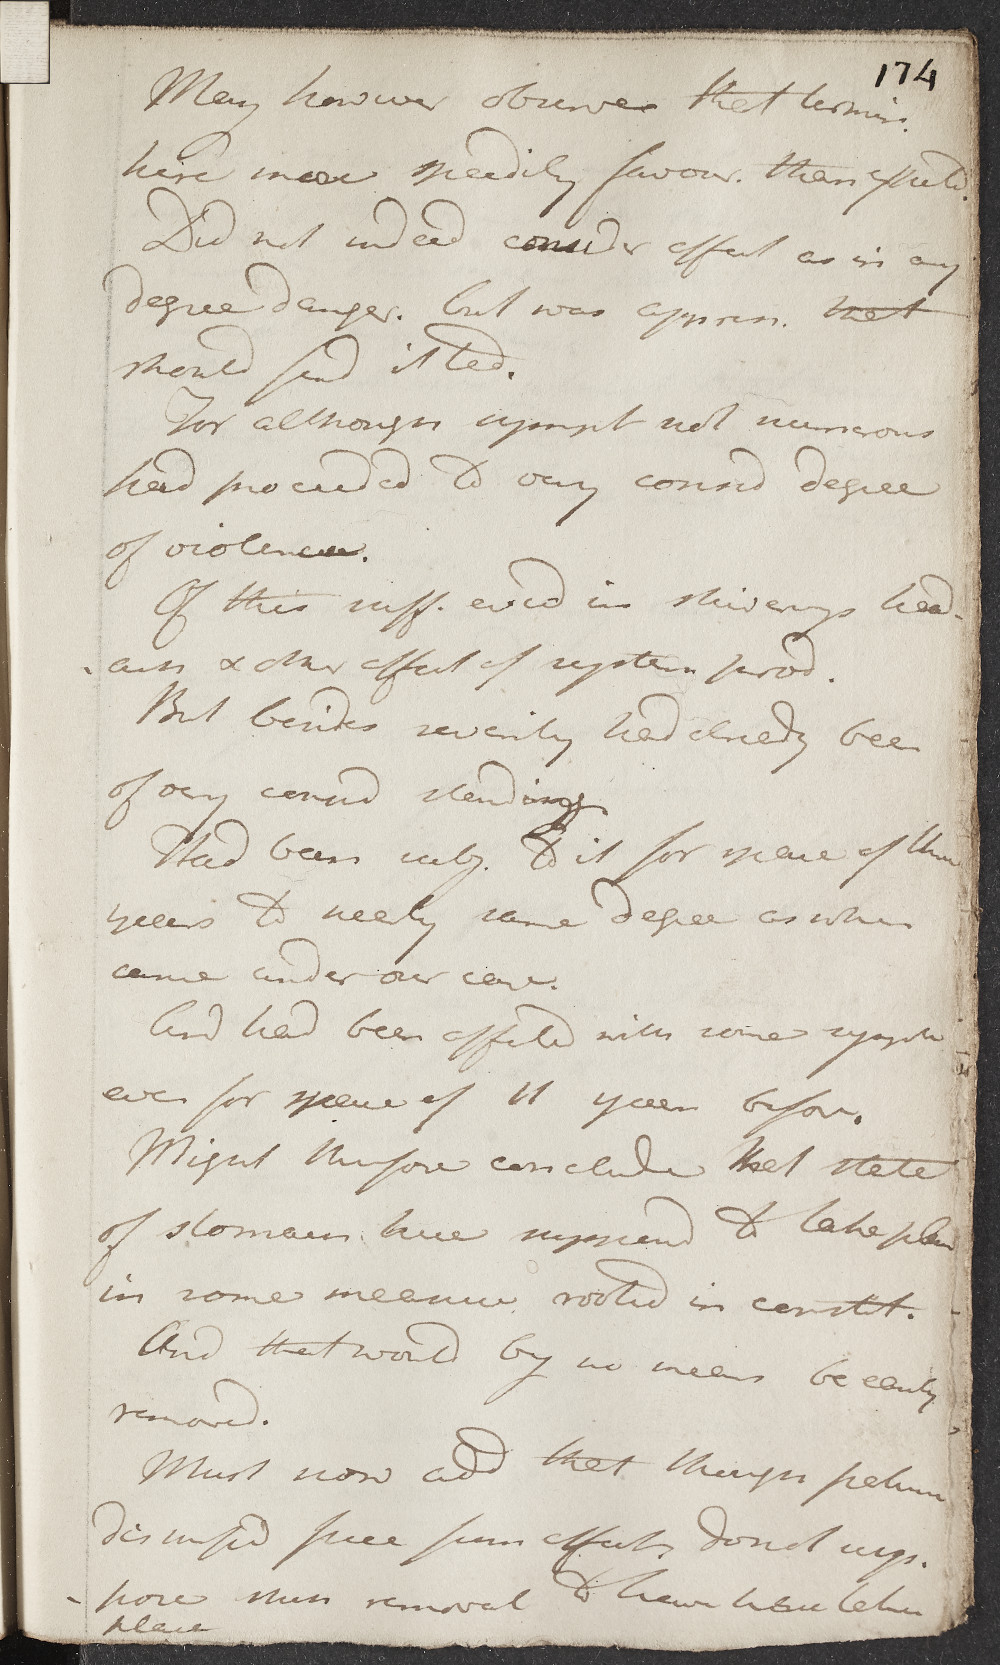 174
May however observe that termin.
here more speedily favour. than expected.
Did not indeed consider affect as in any
degree danger. but was appren. that
should find it ted.
For although sympt not numerous
had proceeded to very consid degree
of violence.
Of this suff. evid in shiverings head-
ach & other affect of system prod.
But besides severity had already been
of very consid standing
Had been subj. to it for space of three
years to nearly same degree as when
came under our care.
And had been affected with some sympts
even for space of 11 years before.
Might therefore conclude that state
of stomach here supposed to take place
in some measure rooted in constit.
And that would by no means be easily
removed.
Must now add that though patient
dismissed free from affect, do not sup-
pose such removal to have here taken
place